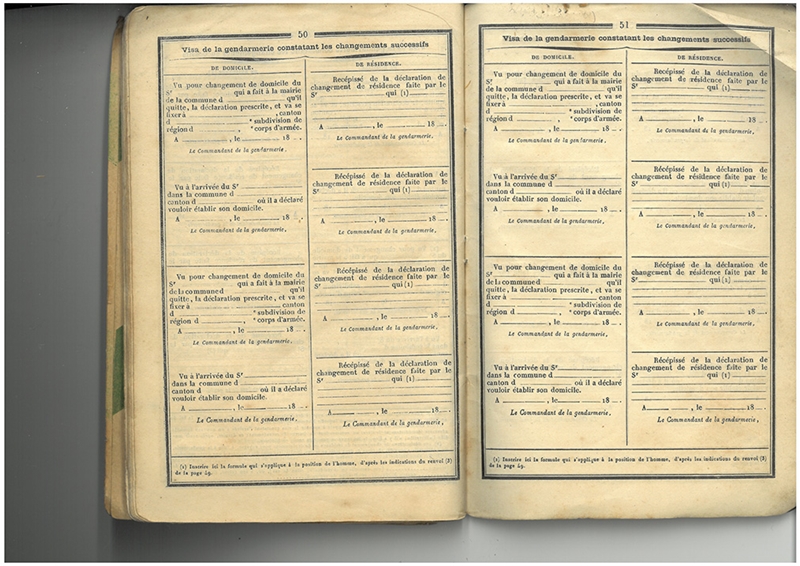 50
Visa de la gendarmerie constatant les changements successifs
DE DOMICILE.
Vu pour changement de domicile du
Sr qui a fait à la mairie
de la commune d qu'il
quitte, la déclaration prescrite, et va se
fixer à , canton
d e subdivision de
région d , e corps d'armée.
A , le 18 .
Le Commandant de la gendarmerie,
Vu à l'arrivée du Sr
dans la commune d
canton d où il a déclaré
vouloir établir son domicile.
A , le 18 .
Le Commandant de la gendarmerie,
Vu pour changement de domicile du
Sr qui a fait à la mairie
de la commune d qu'il
quitte, la déclaration prescrite, et va se
fixer à canton
d e subdivision de
région d , e corps d'armée.
A , le 18 .
Le Commandant de la gendarmerie,
Vu à l'arrivée du Sr
dans la commune d
canton d où il a déclaré
vouloir établir son domicile.
A , le 18 .
Le Commandant de la gendarmerie,
DE RÉSIDENCE.
Récépissé de la déclaration de
changement de résidence faite par le
Sr qui (1)
A , le 18 .
Le Commandant de la gendarmerie,
Récépissé de la déclaration de
changement de résidence faite par le
Sr qui (1)
A , le 18 .
Le Commandant de la gendarmerie,
Récépissé de la déclaration de
changement de résidence faite par le
Sr qui (1)
A , le 18 .
Le Commandant de la gendarmerie,
Récépissé de la déclaration de
changement de résidence faite par le
Sr qui (1)
A , le 18 .
Le Commandant de la gendarmerie,
(1) Inscrire ici la formule qui s'applique à la position de l'homme, d'après les indications du renvoi (3)
de la page 49.
51
Visa de la gendarmerie constatant les changements successifs
DE DOMICILE.
Vu pour changement de domicile du
Sr qui a fait à la mairie
de la commune d qu'il
quitte, la déclaration prescrite, et va se
fixer à , canton
d e subdivision de
région d , e corps d'armée.
A , le 18 .
Le Commandant de la gendarmerie,
Vu à l'arrivée du Sr
dans la commune d
canton d où il a déclaré
vouloir établir son domicile.
A , le 18 .
Le Commandant de la gendarmerie,
Vu pour changement de domicile du
Sr qui a fait à la mairie
de la commune d qu'il
quitte, la déclaration prescrite, et va se
fixer à canton
d e subdivision de
région d , e corps d'armée.
A , le 18 .
Le Commandant de la gendarmerie,
Vu à l'arrivée du Sr
dans la commune d
canton d où il a déclaré
vouloir établir son domicile.
A , le 18 .
Le Commandant de la gendarmerie,
DE RÉSIDENCE.
Récépissé de la déclaration de
changement de résidence faite par le
Sr qui (1)
A , le 18 .
Le Commandant de la gendarmerie,
Récépissé de la déclaration de
changement de résidence faite par le
Sr qui (1)
A , le 18 .
Le Commandant de la gendarmerie,
Récépissé de la déclaration de
changement de résidence faite par le
Sr qui (1)
A , le 18 .
Le Commandant de la gendarmerie,
Récépissé de la déclaration de
changement de résidence faite par le
Sr qui (1)
A , le 18 .
Le Commandant de la gendarmerie,
(1) Inscrire ici la formule qui s'applique à la position de l'homme, d'après les indications du renvoi (3)
de la page 49.